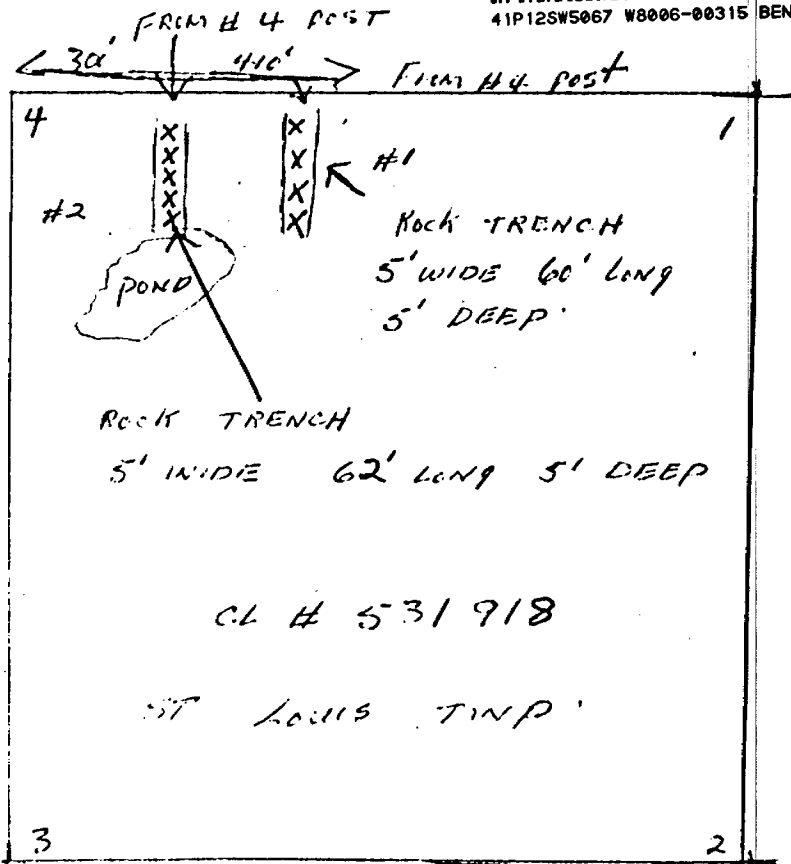 41P12SW5067 W8006-00315 BEN
FROM # 4 POST
30'
440'
From #4 post
4
1
#2
#1
Rock TRENCH
5' WIDE 60' Long
5' DEEP
POND
ROCK TRENCH
5' WIDE 62' Long 5' DEEP
CL # 531918
ST Louis TWP.
3
2